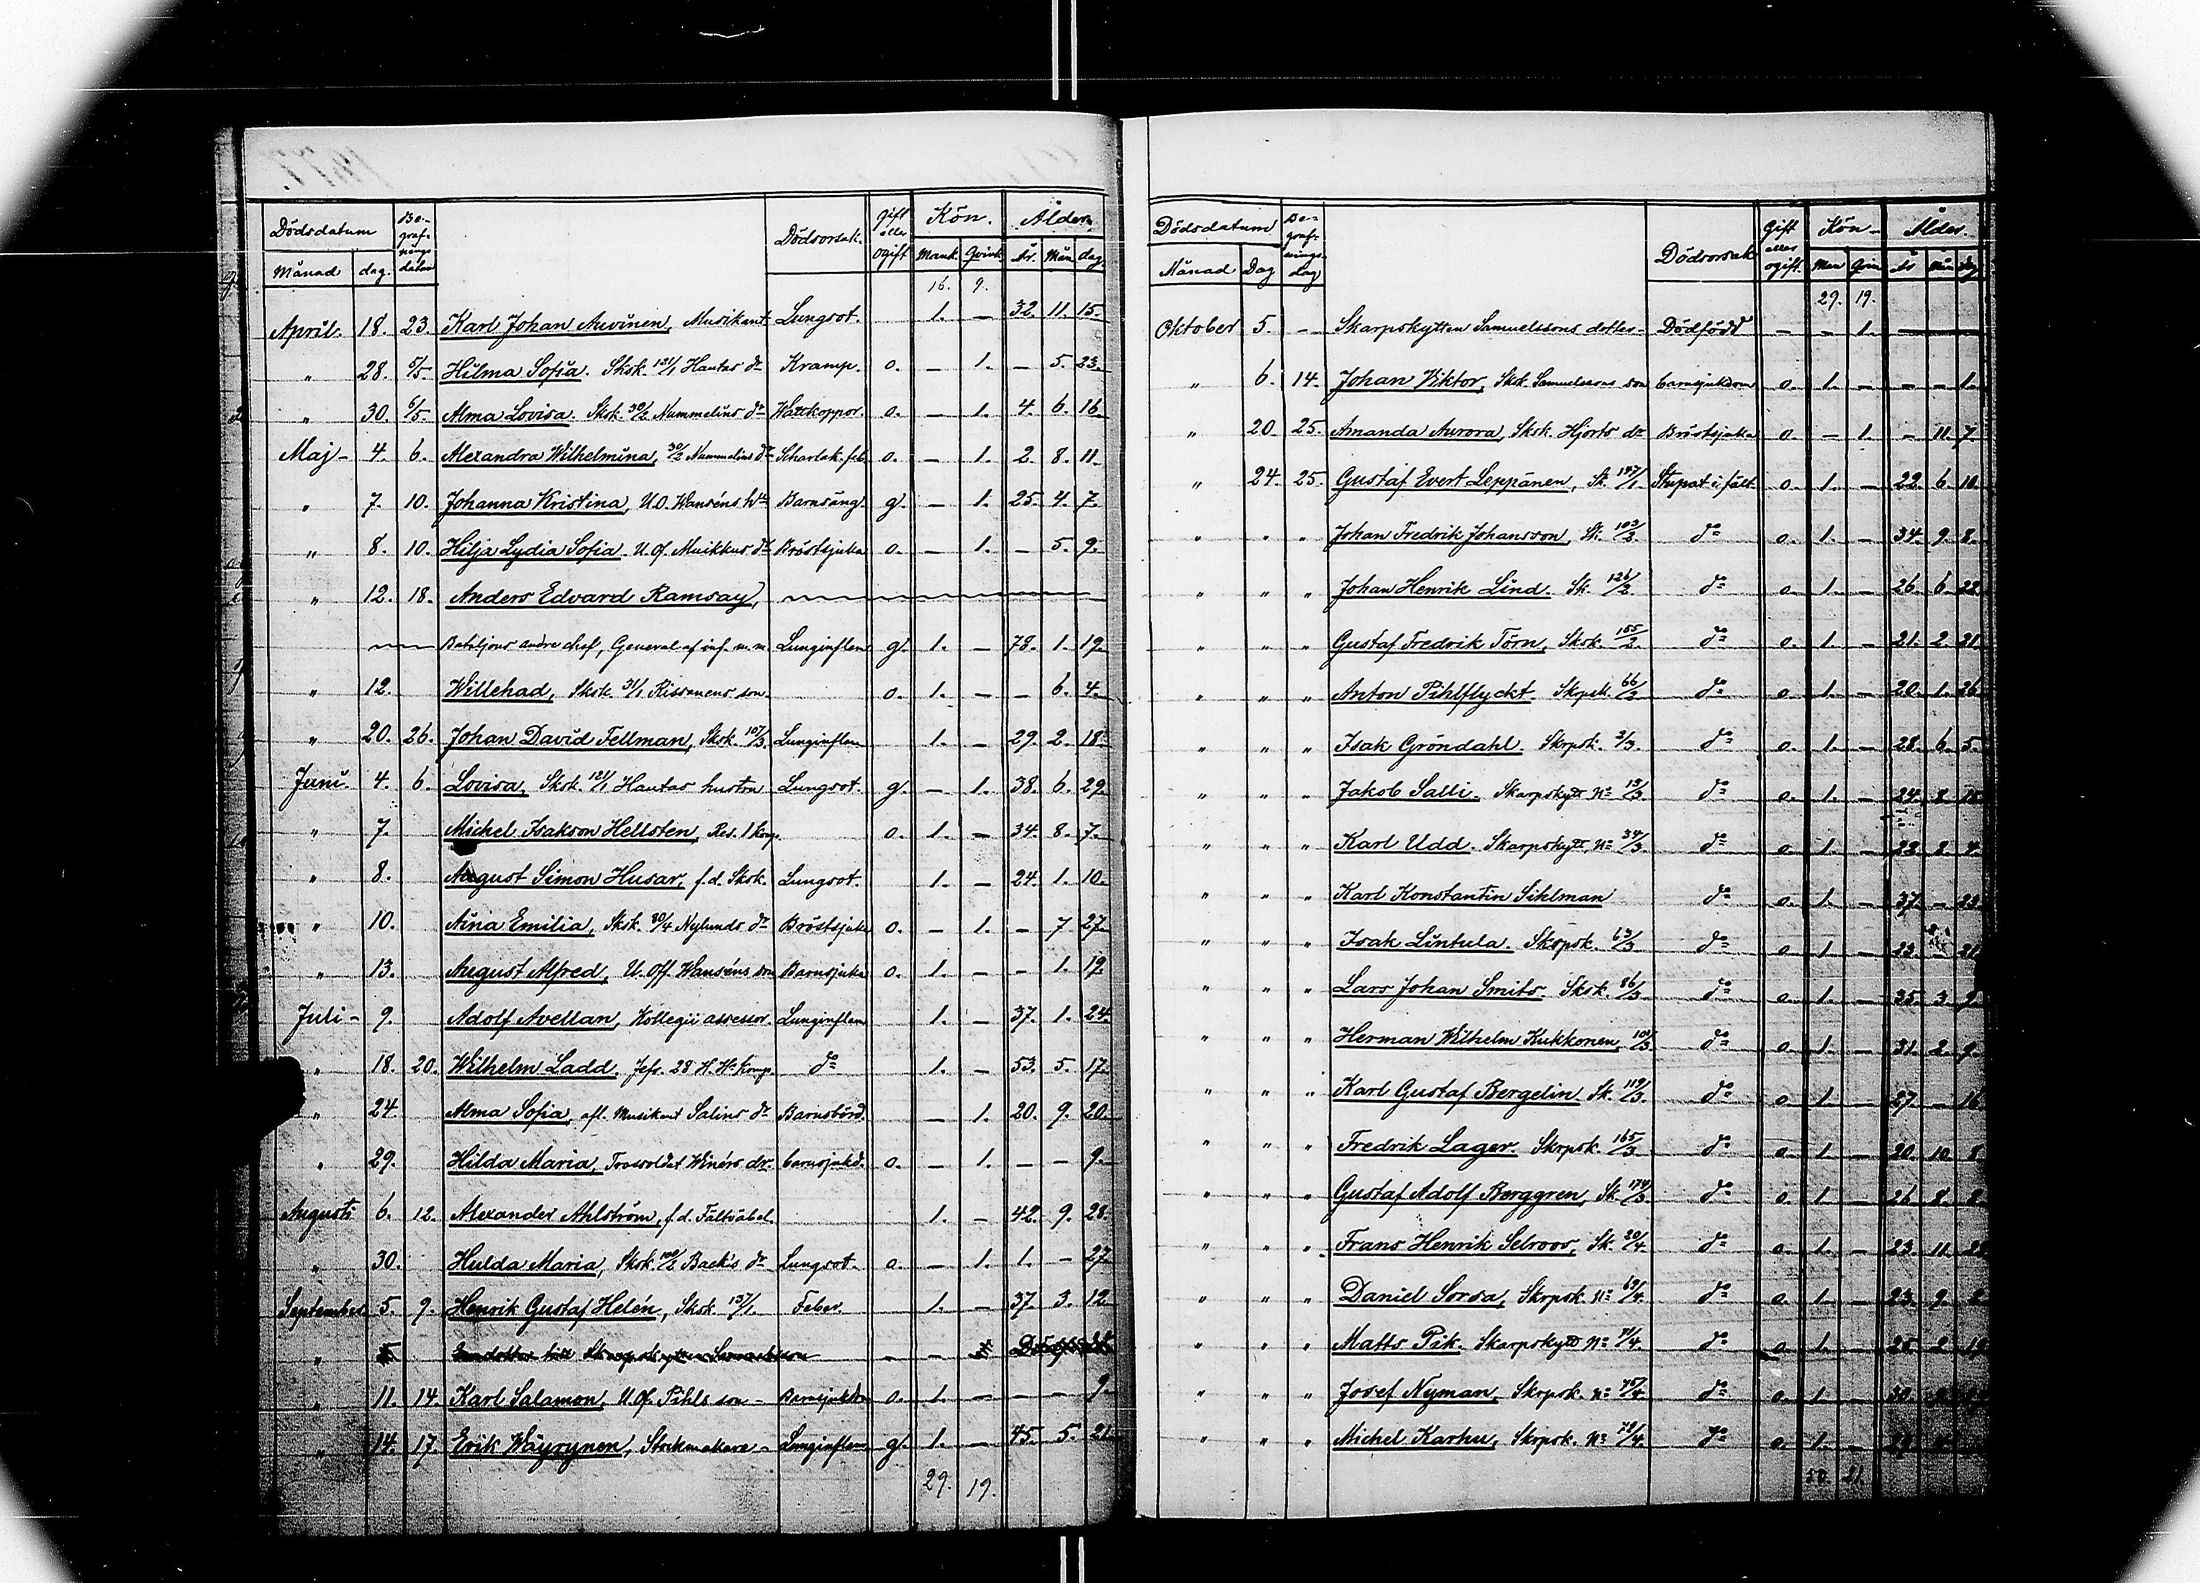 Dödsdatum Begrafningsdatum Dödsorsak. Gift eller ogift Kön. Ålder.
Månad dag. Mank. Qvink. År. Mån. dag.
16. 9.
April. 18. 23. Karl Johan Auvinen, Musikant Lungsot. 1. — 32. 11. 15.
" 28. 5/5. Hilma Sofia. Sksk. 121/1 Hautas dr Kramp. o. — 1. — 5. 23.
" 30. 6/5. Alma Lovisa. Skok. 30/2 Nummelins dr Vattkoppor. o. — 1. 4. 6. 16.
Maj — 4. 6. Alexandra Wilhelmina, 30/2 Nummelins dr Scharlak. feb. o. — 1. 2. 8. 11.
" 7. 10. Johanna Kristina, U.O. Wanséns h. Barnsäng. g. — 1. 25. 4. 7.
" 8. 10. Hilja Lydia Sofia. U. Of. Muikkus dr Bröstsjuka o. — 1. — 5. 9.
" 12. 18. Anders Edvard Ramsay,
Bataljons andre chef, General af inf. m.m. Lunginflam g. 1. — 78. 1. 19.
" 12. Willehad, Skok. 31/1 Rissanens son o. 1. — — 6. 4.
" 20. 26. Johan David Fellman, Skok. 107/3 Lunginflam 1. — 29. 2. 18.
Juni. 4. 6. Lovisa, Skok. 121/1 Hautas hustru Lungsot. g. — 1. 38. 6. 29.
" 7. Michel Isakson Hellsten, Res. 1 komp. o. 1. — 34. 8. 7.
" 8. August Simon Husar, f.d. Skok. Lungsot. 1. — 24. 1. 10.
" 10. Aina Emilia, Skok. 80/4 Nylunds dr Bröstsjuka o. — 1. — 7 27.
" 13. August Alfred, U. Off. Wanséns son Barnsjuka o. 1. — — 1. 19.
Juli — 9. Adolf Avellan, Kollegii assessor. Lunginflam 1. — 37. 1. 24.
" 18. 20. Wilhelm Ladd, Jefr. 28 H. Hs Komp. do 1. — 53. 5. 17.
" 24. Alma Sofia, afl. Musikant Salins dr Barnsbörd. — 1. 20. 9. 20.
" 29. Hilda Maria, Trossoldat Winérs dr. barnsjukd. o. — 1. — — 9.
Augusti 6. 12. Alexander Ahlström, f.d. Fältväbel. 1. — 42. 9. 28.
" 30. Hulda Maria, Skok. 100/2 Backs dr Lungsot. o. — 1. 1. — 27.
September 5. 9. Henrik Gustaf Helén, Skok. 137/1. Feber. 1. — 37. 3. 12.
" 11. 14. Karl Salamon, U. Of. Pihls son — Barnsjukdom o. 1. — — — 9.
" 14. 17. Erik Wäyrynen, Stockmakare — Lunginflam g. 1. — 45. 5. 21.
29. 19.
Dödsdatum Begrafningsdag Dödsorsak Gift eller ogift. Kön — Ålder.
Månad Dag Man Qvin År Mån dag
29. 19.
Oktober 5. — Skarpskytten Samuelssons dotter — Dödfödd — — 1.
" 6. 14. Johan Viktor, Skok. Samuelssons son barnsjukdom o. 1. — — — 1.
" 20. 25. Amanda Aurora, Skok. Hjorts dr Bröstsjuka o. — 1. — 11. 7.
" 24. 25. Gustaf Evert Leppänen, Sk. 137/1. Stupat i fält. o. 1. — 22. 6. 10.
" " " Johan Fredrik Johansson, Sk. 103/2. do o. 1. — 34. 9. 8.
" " " Johan Henrik Lind. Sk. 126/2 do o. 1. — 26. 6. 22.
" " " Gustaf Fredrik Törn, Skok. 155/2. do o. 1. — 21. 2. 21.
" " " Anton Pihlflyckt. Skrpsk. 66/3 do o. 1. — 20. 1. 26.
" " " Isak Gröndahl. Skrpsk. 2/3. do o. 1. — 28. 6. 5.
" " " Jakob Salli. Skarpskytt No 13/3. do o. 1. — 24. 8. 18.
" " " Karl Udd. Skarpskytt No 34/3. do o. 1. — 22. 2. 4.
" " " Karl Konstantin Sihlman do o. 1. — 37. — 23.
" " " Isak Lintula. Skrpsk. 63/3. do o. 1. — 23. 21.
" " " Lars Johan Smits. Skok. 86/3. do o. 1. — 35. 3. 9.
" " " Herman Wilhelm Kukkonen, 101/3. do o. 1. — 31. 2. 9.
" " " Karl Gustaf Bergelin Sk. 119/3. do o. 1. — 27. — 16.
" " " Fredrik Lager. Skrpsk. 165/3. do o. 1. — 20. 10. 8
" " " Gustaf Adolf Berggren, Sk. 174/3. do o. 1. — 26. 8. 8.
" " " Frans Henrik Selroos, Sk. 20/4. do o. 1. — 23. 11. 28
" " " Daniel Sorsa, Skrpsk. No 69/4. do o. 1. — 23. 9. 2.
" " " Matts Pik. Skarpskytt No 71/4. do o. 1. — 25. 2. 19
" " " Josef Nyman, Skrpsk. No 75/4. do o. 1. — 30.
" " " Michel Karhu, Skrpsk. No 79/4. do o. 1. —
50. 21.